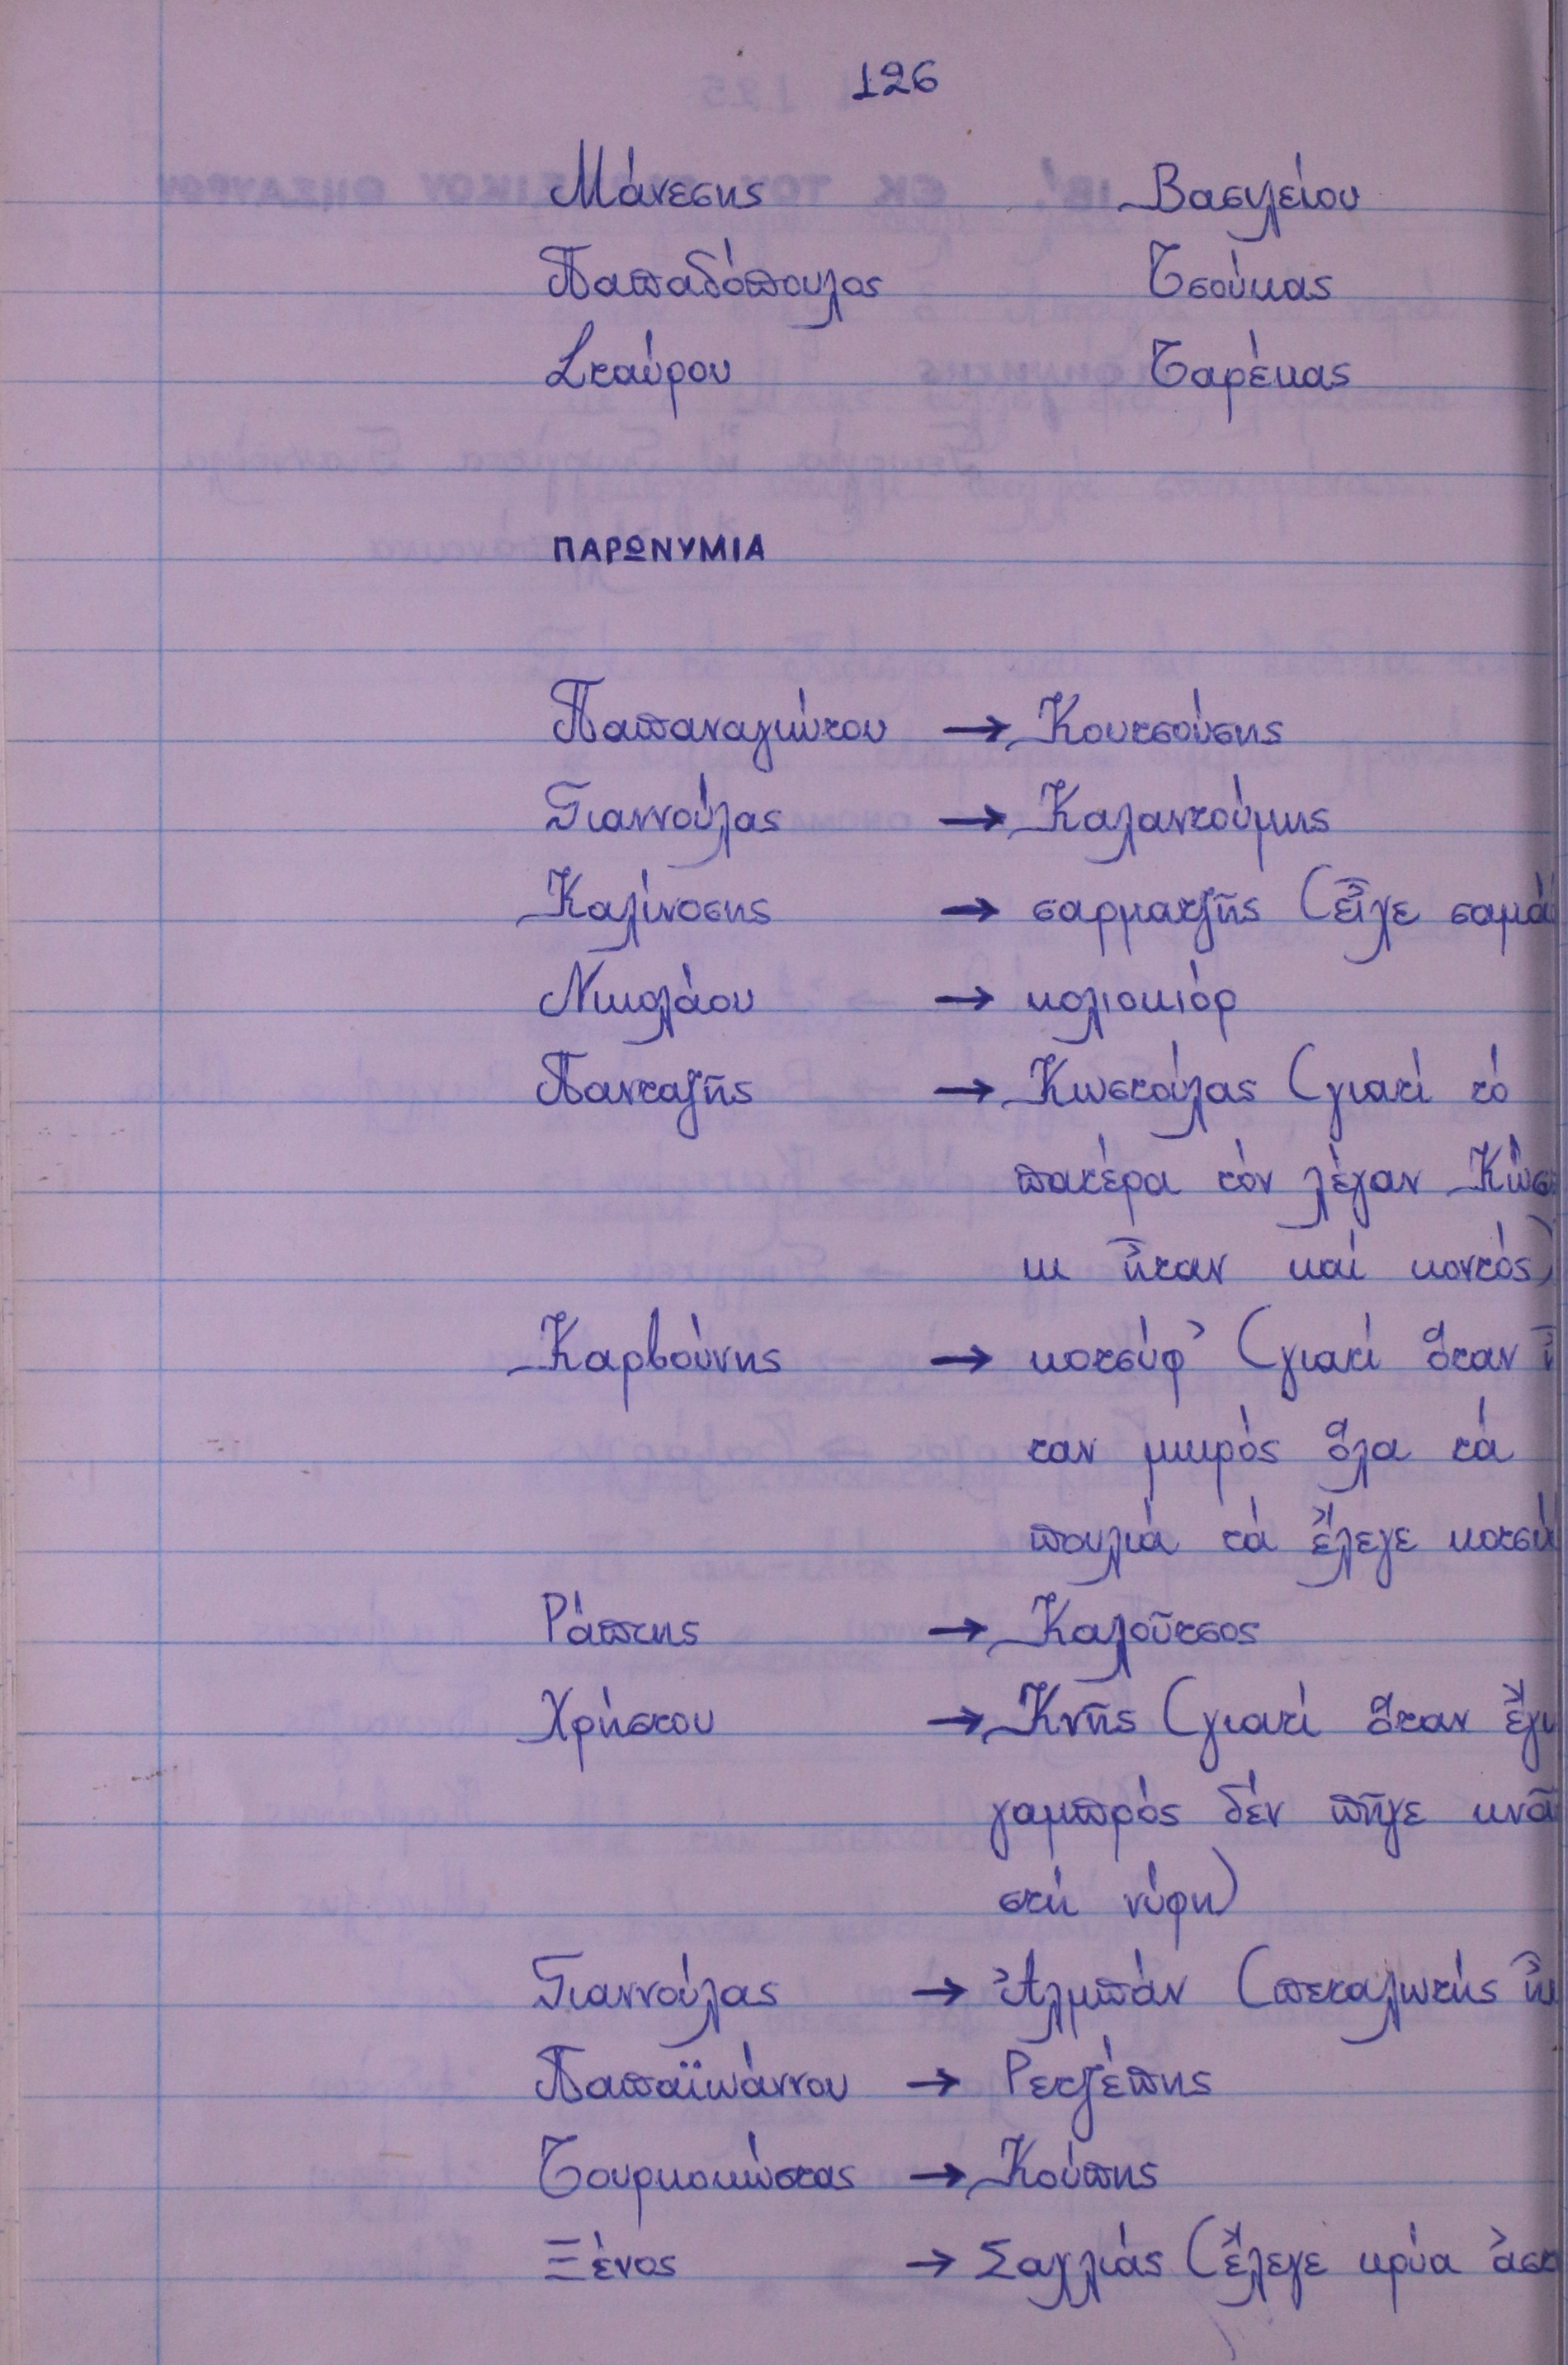 126
Μάνεσης Βασιλείου
Παπαδόπουλος Τσούκας
Σταύρου Ταρέκας
ΠΑΡΩΝΥΜΙΑ
Παπαναγιώτου → Κουτσούσης
Γιαννούλας → Καλαντούμης
Καλίνοσης → σαρματζῆς (εἶχε
Νικολάου → κολιοκιόρ
Πανταζῆς → Κωστούλας (γιατί τό
πατέρα τόν λέγαν
κι ἦταν καί κοντός)
Καρβούνης → κοτσύφ' (γιατί ὅταν
ταν μικρός ὅλα τά
πουλιά τά ἔλεγε
Ράπτης → Καλοῦτσος
Χρήστου → Κνῆς (γιατί ὅταν
γαμπρός δέν πῆγε κνᾶ
στή νύφη)
Γιαννούλας → Ἀλμπάν (πεταλωτής
Παπαϊωάννου → Ρετζέπης
Τουρκοκώστας → Κούπης
Ξένος → Σαχλιάς (ἔλεγε κρύα